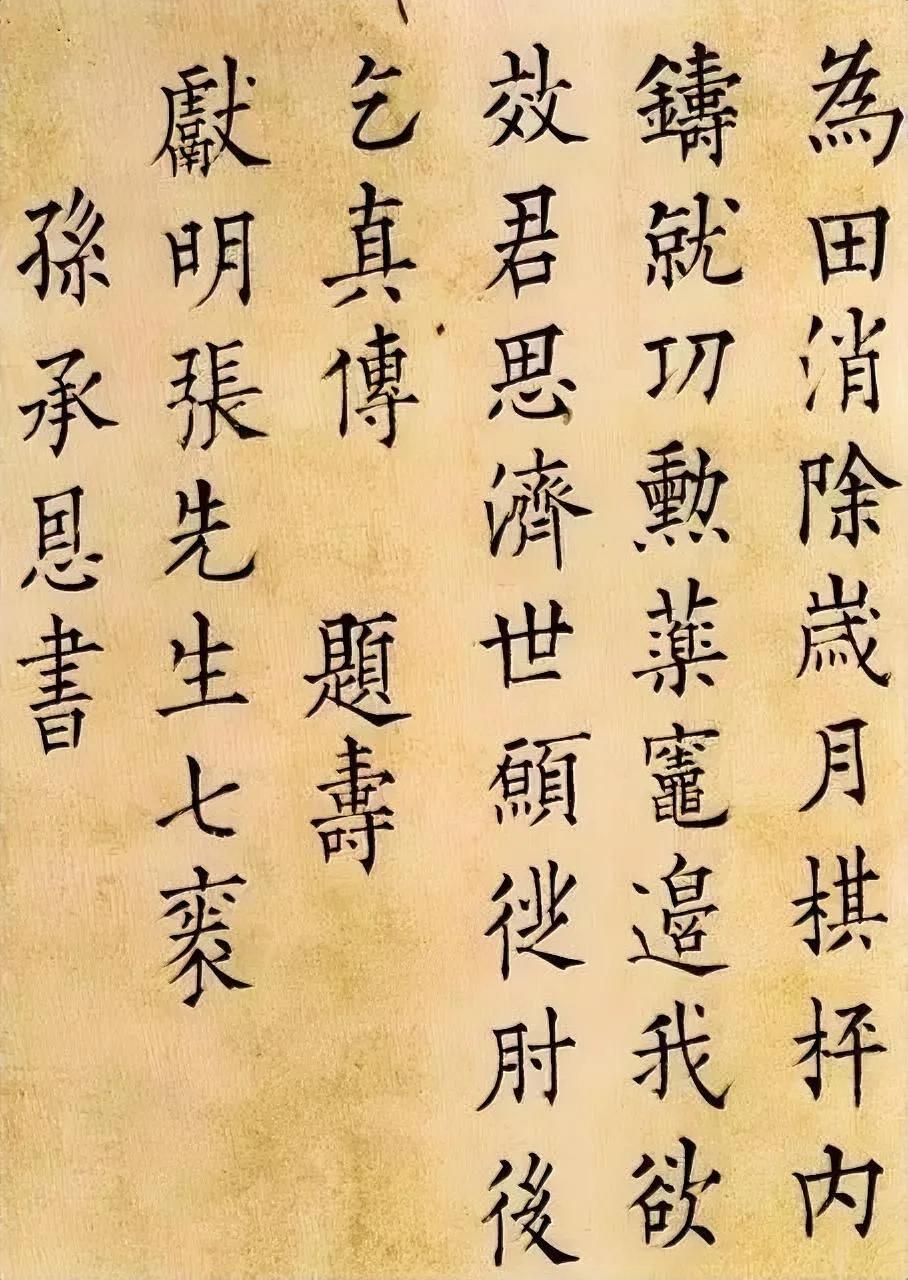 為田消除歲月棋枰内
鑄就功勲薬竈邉我欲
效君思濟世願從肘後
乞真傳　題壽
獻明張先生七袠
孫承恩書